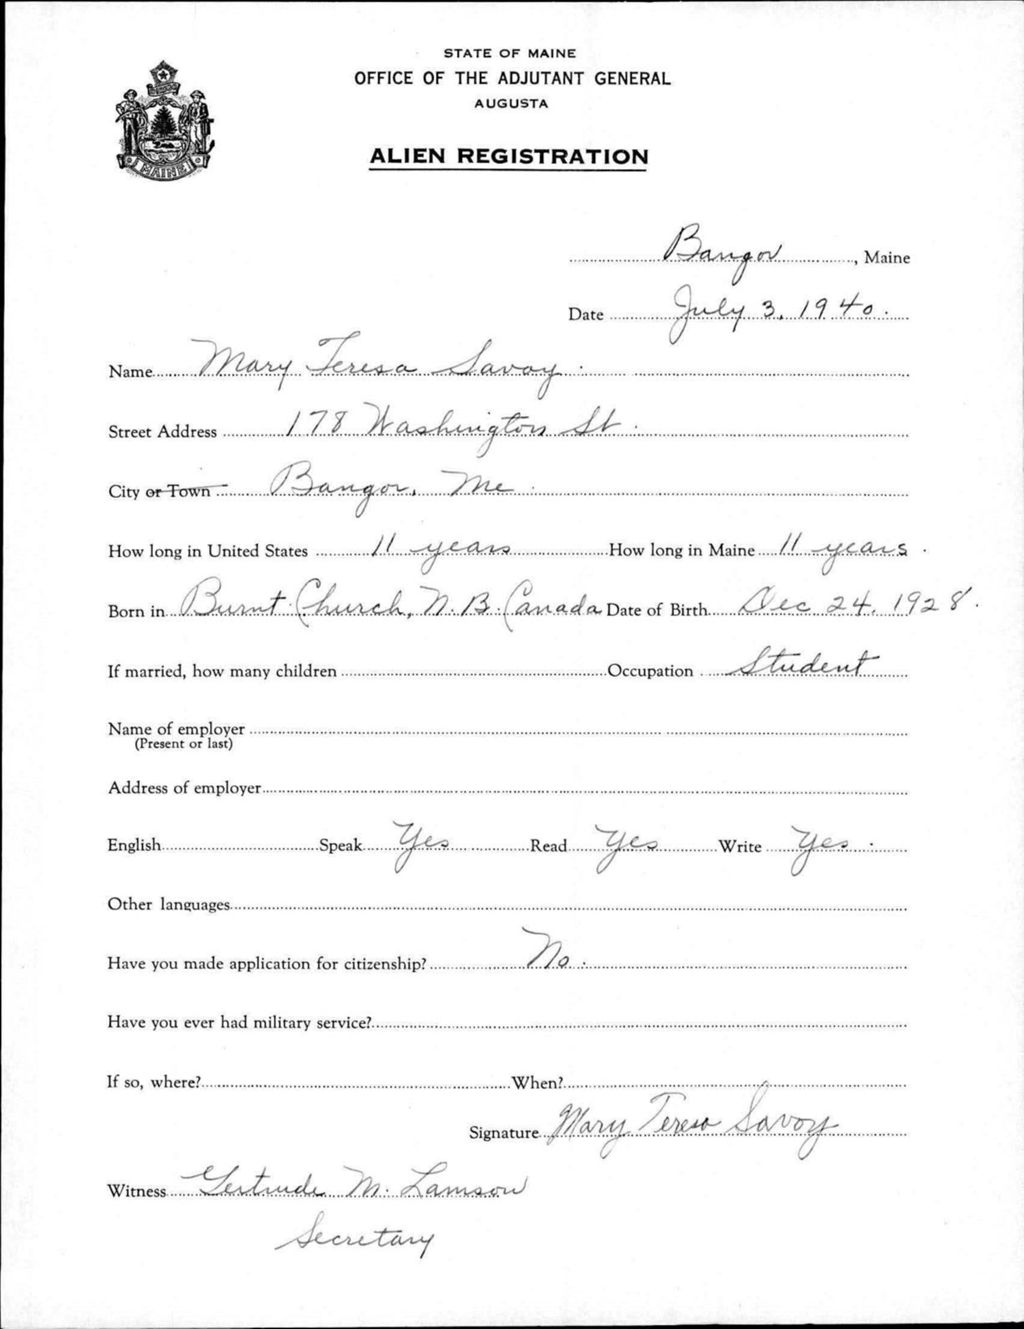 STATE OF MAINE
OFFICE OF THE ADJUTANT GENERAL
AUGUSTA
ALIEN REGISTRATION
MAINE
Bangor, Maine
Date July 3, 1940.
Name Mary Teresa Savoy.
Street Address 178 Washington St.
City or Town Bangor, Me.
How long in United States 11 years How long in Maine 11 years.
Born in Burnt Church, N.B. Canada Date of Birth Dec 24, 1928.
If married, how many children Occupation Student
Name of employer
(Present or last)
Address of employer
English Speak Yes Read Yes Write Yes.
Other languages
Have you made application for citizenship? No.
Have you ever had military service?
If so, where? When?
Signature Mary Teresa Savoy
Witness Gertrude M. Lamson
Secretary